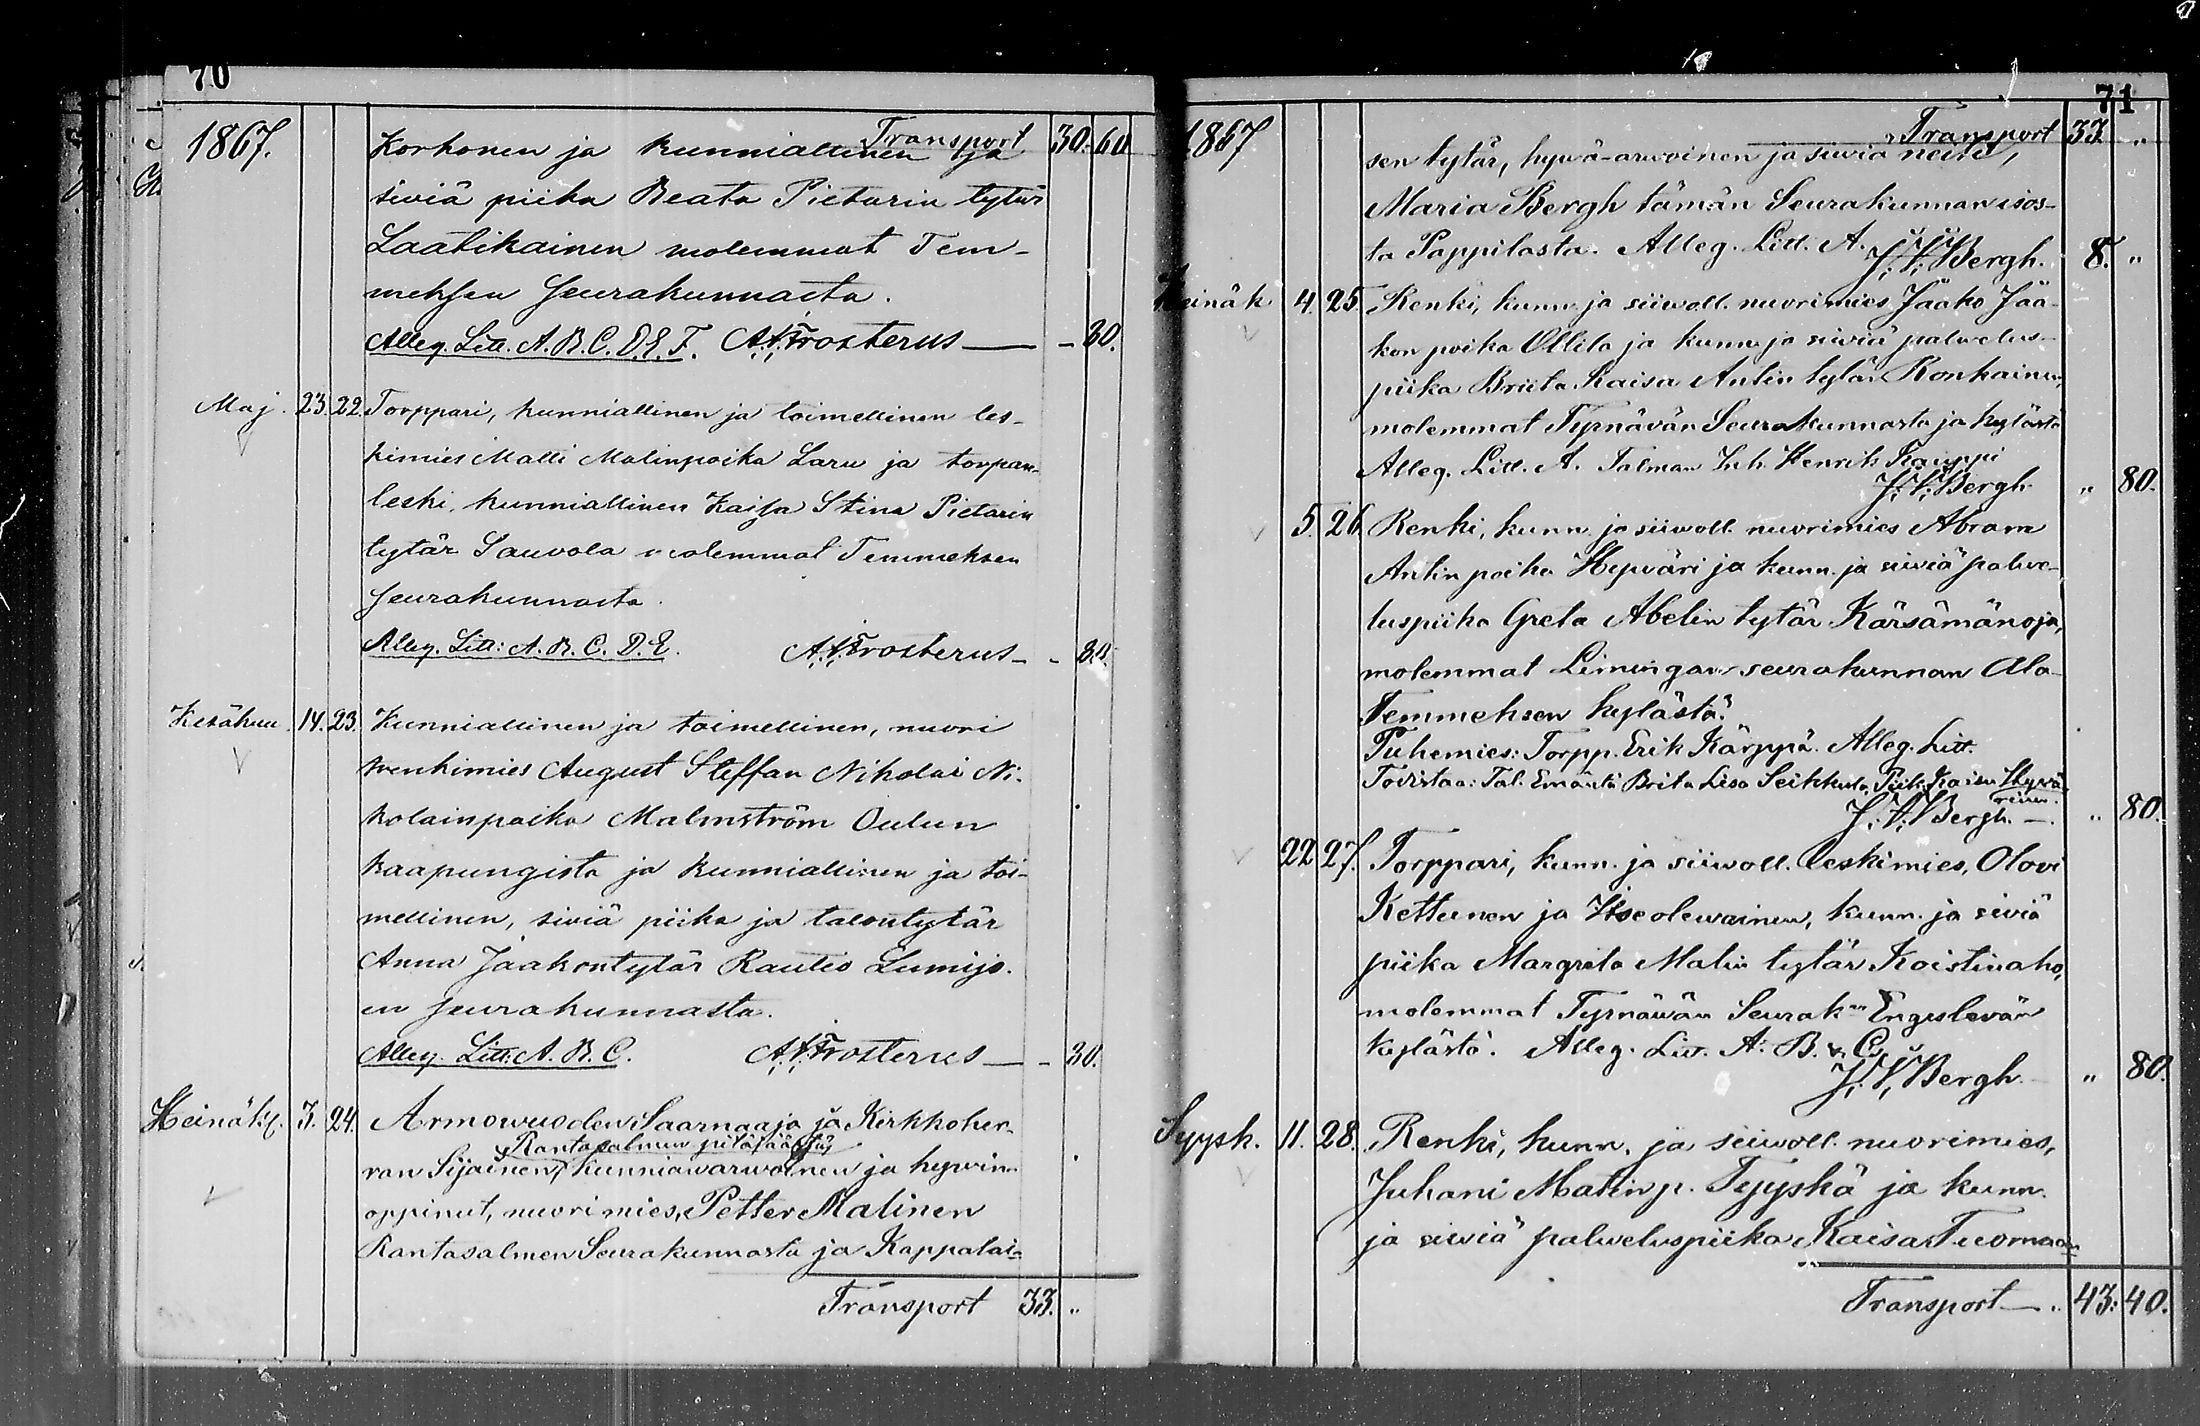 70
1867. Transport 30. 60
Korhonen ja kunniallinen ja
siviä piika Beata Pietarin tytär
Laatikainen molemmat Tem-
meksen Seurakunnasta.
Alleg. Litt. A. B. C. D. E. F. A. V. Frosterus — - 80.
Maj. 23. 22. Torppari, kunniallinen ja toimellinen les-
kimies Matti Matinpoika Laru ja torpan-
leski, kunniallinen Kaisa Stina Pietarin
tytär Sauvola molemmat Temmeksen
Seurakunnasta.
Alleg. Litt: A. B. C. D. E. A. V. Frosterus - - 80.
Kesäkuu. 14. 23. Kunniallinen ja toimellinen, nuori
renkimies August Steffan Nikolai Ni-
kolainpoika Malmström Oulun
kaapungista ja kunniallinen ja toi-
mellinen, siviä piika ja talontytär
Anna Jaakontytär Rautio Lumijo-
en seurakunnasta.
Alleg. Litt: A. B. C. A. V. Frosterus — - 80.
Heinäk. 3. 24. Armowuoden Saarnaaja ja Kirkkoher-
Rantasalmen pitäjäästä
ran Sijainen, kunniawarwoinen ja hywin
oppinut, nuorimies, Petter Malinen
Rantasalmen Seurakunnasta ja Kappalai-
Transport 33. "
71
1867 Transport 33. "
sen tytär, hywä-arwoinen ja siwiä neito,
Maria Bergh tämän Seurakunnan isos-
ta Pappilasta. Alleg. Litt. A. J. V. Bergh. 8. "
Heinäk 4. 25. Renki, kunn. ja siiwoll. nuorimies Jaako Jaa-
kon poika Ollila ja kunn. ja siwiä palwelus-
piika Briita Kaisa Antin tytär Ronkainen,
molemmat Tyrnävän Seurakunnasta ja kylästä
Alleg. Litt. A. Talman Inh. Henrik Kauppi
J. V. Bergh. " 80.
5. 26. Renki, kunn. ja siiwoll. nuorimies Abram
Antin poika Hywäri ja kunn. ja siwiä palwe-
luspiika Greta Abelin tytär Kärsämänoja,
molemmat Limingan seurakunnan Ala-
Temmeksen kylästä.
Puhemies: Torpp. Erik Kärppä. Alleg. Litt.
Todistaa: Tal. Emäntä Brita Lisa Seikkula, Piik. Kaisa Hywä-
rinen.
J. V. Bergh. — " 80.
22 27. Torppari, kunn. ja siiwoll. leskimies, Olovi
Kettunen ja Itseolewainen, kunn. ja siwiä
piika Margreta Matin tytär Koistinaho,
molemmat Tyrnäwän Seurak:n Engeslevän
kylästä. Alleg. Litt. A. B. & C.
J. V. Bergh. " 80.
Syysk. 11. 28. Renki, kunn. ja siiwoll. nuorimies,
Juhani Matinp. Tyyskä ja kunn.
ja siwiä palweluspiika Kaisa Tuomaan
Transport — " 43: 40.